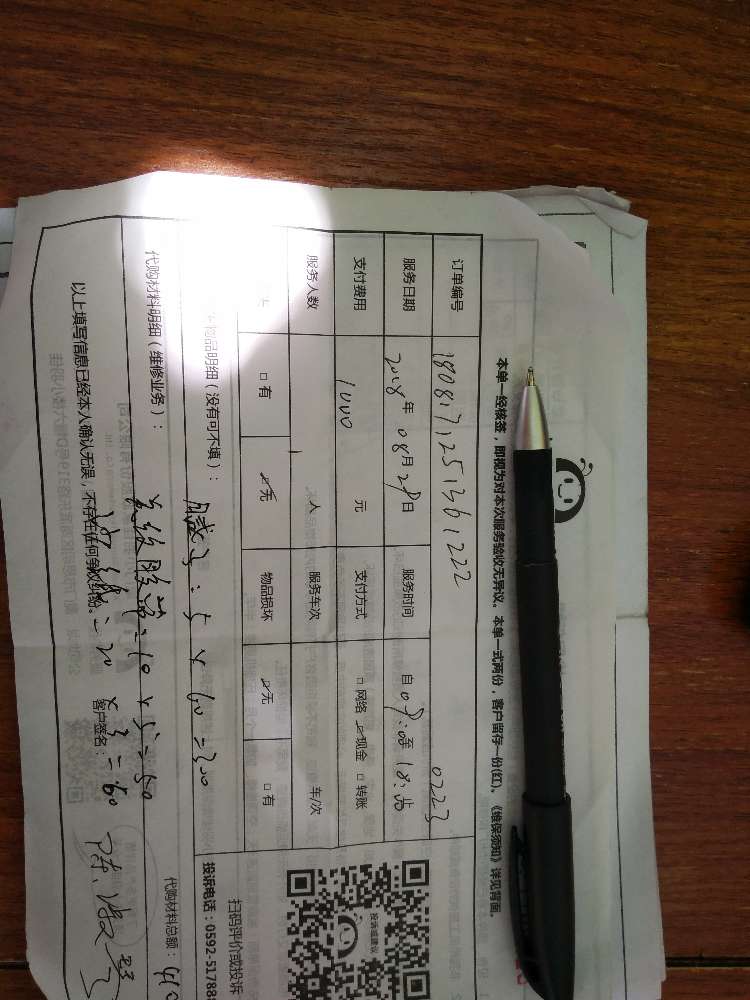 本单一经核签，即视为对本次服务验收无异议。本单一式两份，客户留存一份(红)。《维保须知》详见背面。
订单编号 1808171251361222 0223
服务日期 2018年 08月 28日 服务时间 自 09:00至 18:00
支付费用 1000 元 支付方式 □网络 ☑现金 □转账
服务人数 1 人 服务车次 车/次
□有 ☑无 物品损坏 ☑无 □有
物品明细（没有可不填）：
5 × 60 = 300
代购材料明细（维修业务）：
10 × 5 = 50
代购材料总额： 410
= 20 × 3 = 60
以上填写信息已经本人确认无误，不存在任何争议纠纷。
客户签名：
扫码评价或投诉
投诉电话：0592-51788
投诉或建议